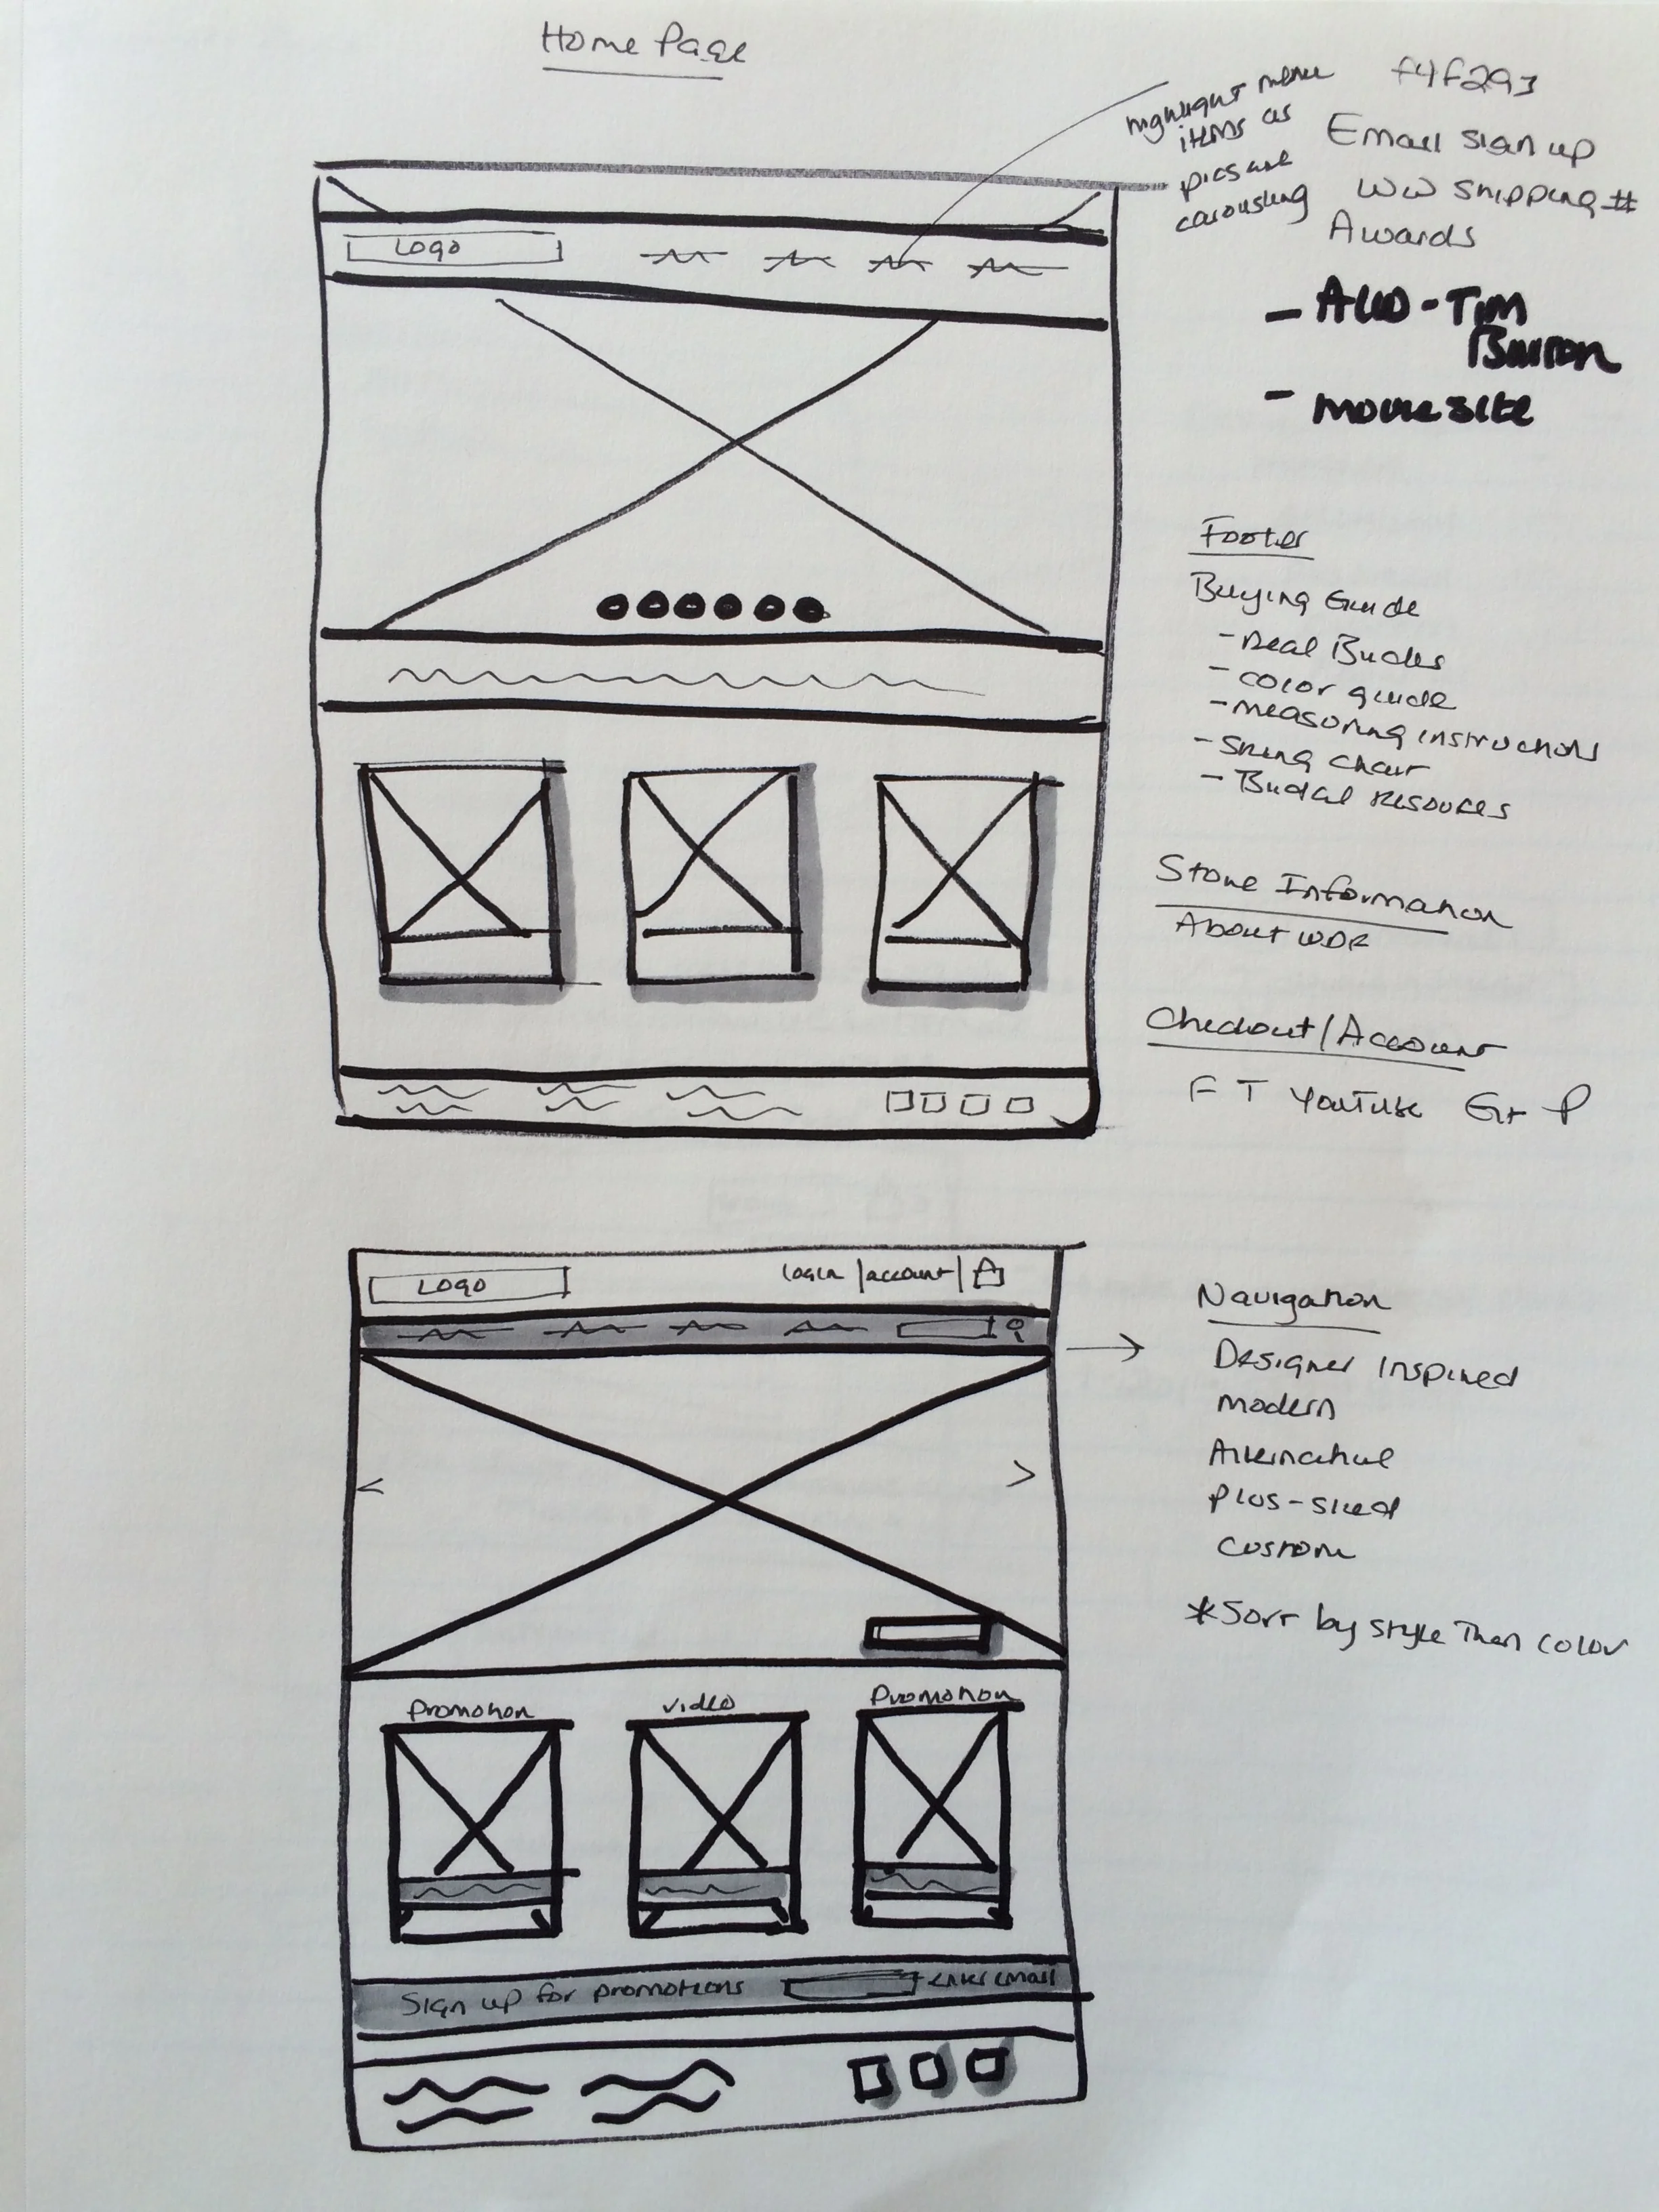 Home Page
highlight menu
items as
pics are
carousling
f4f293
Email sign up
WW Shipping #
Awards
- Tim
Burton
- movie site
LOGO
Footer
Buying Guide
- Real Brides
- color guide
- measuring instructions
- Sizing Chart
- Bridal Resources
Store Information
About WDR
Checkout/Account
F T YouTube G+ P
LOGO
login | account |
Navigation
Designer Inspired
modern
Alternative
plus-sized
custom
*Sort by style Then color
promotion
video
Promotion
Sign up for promotions
enter email